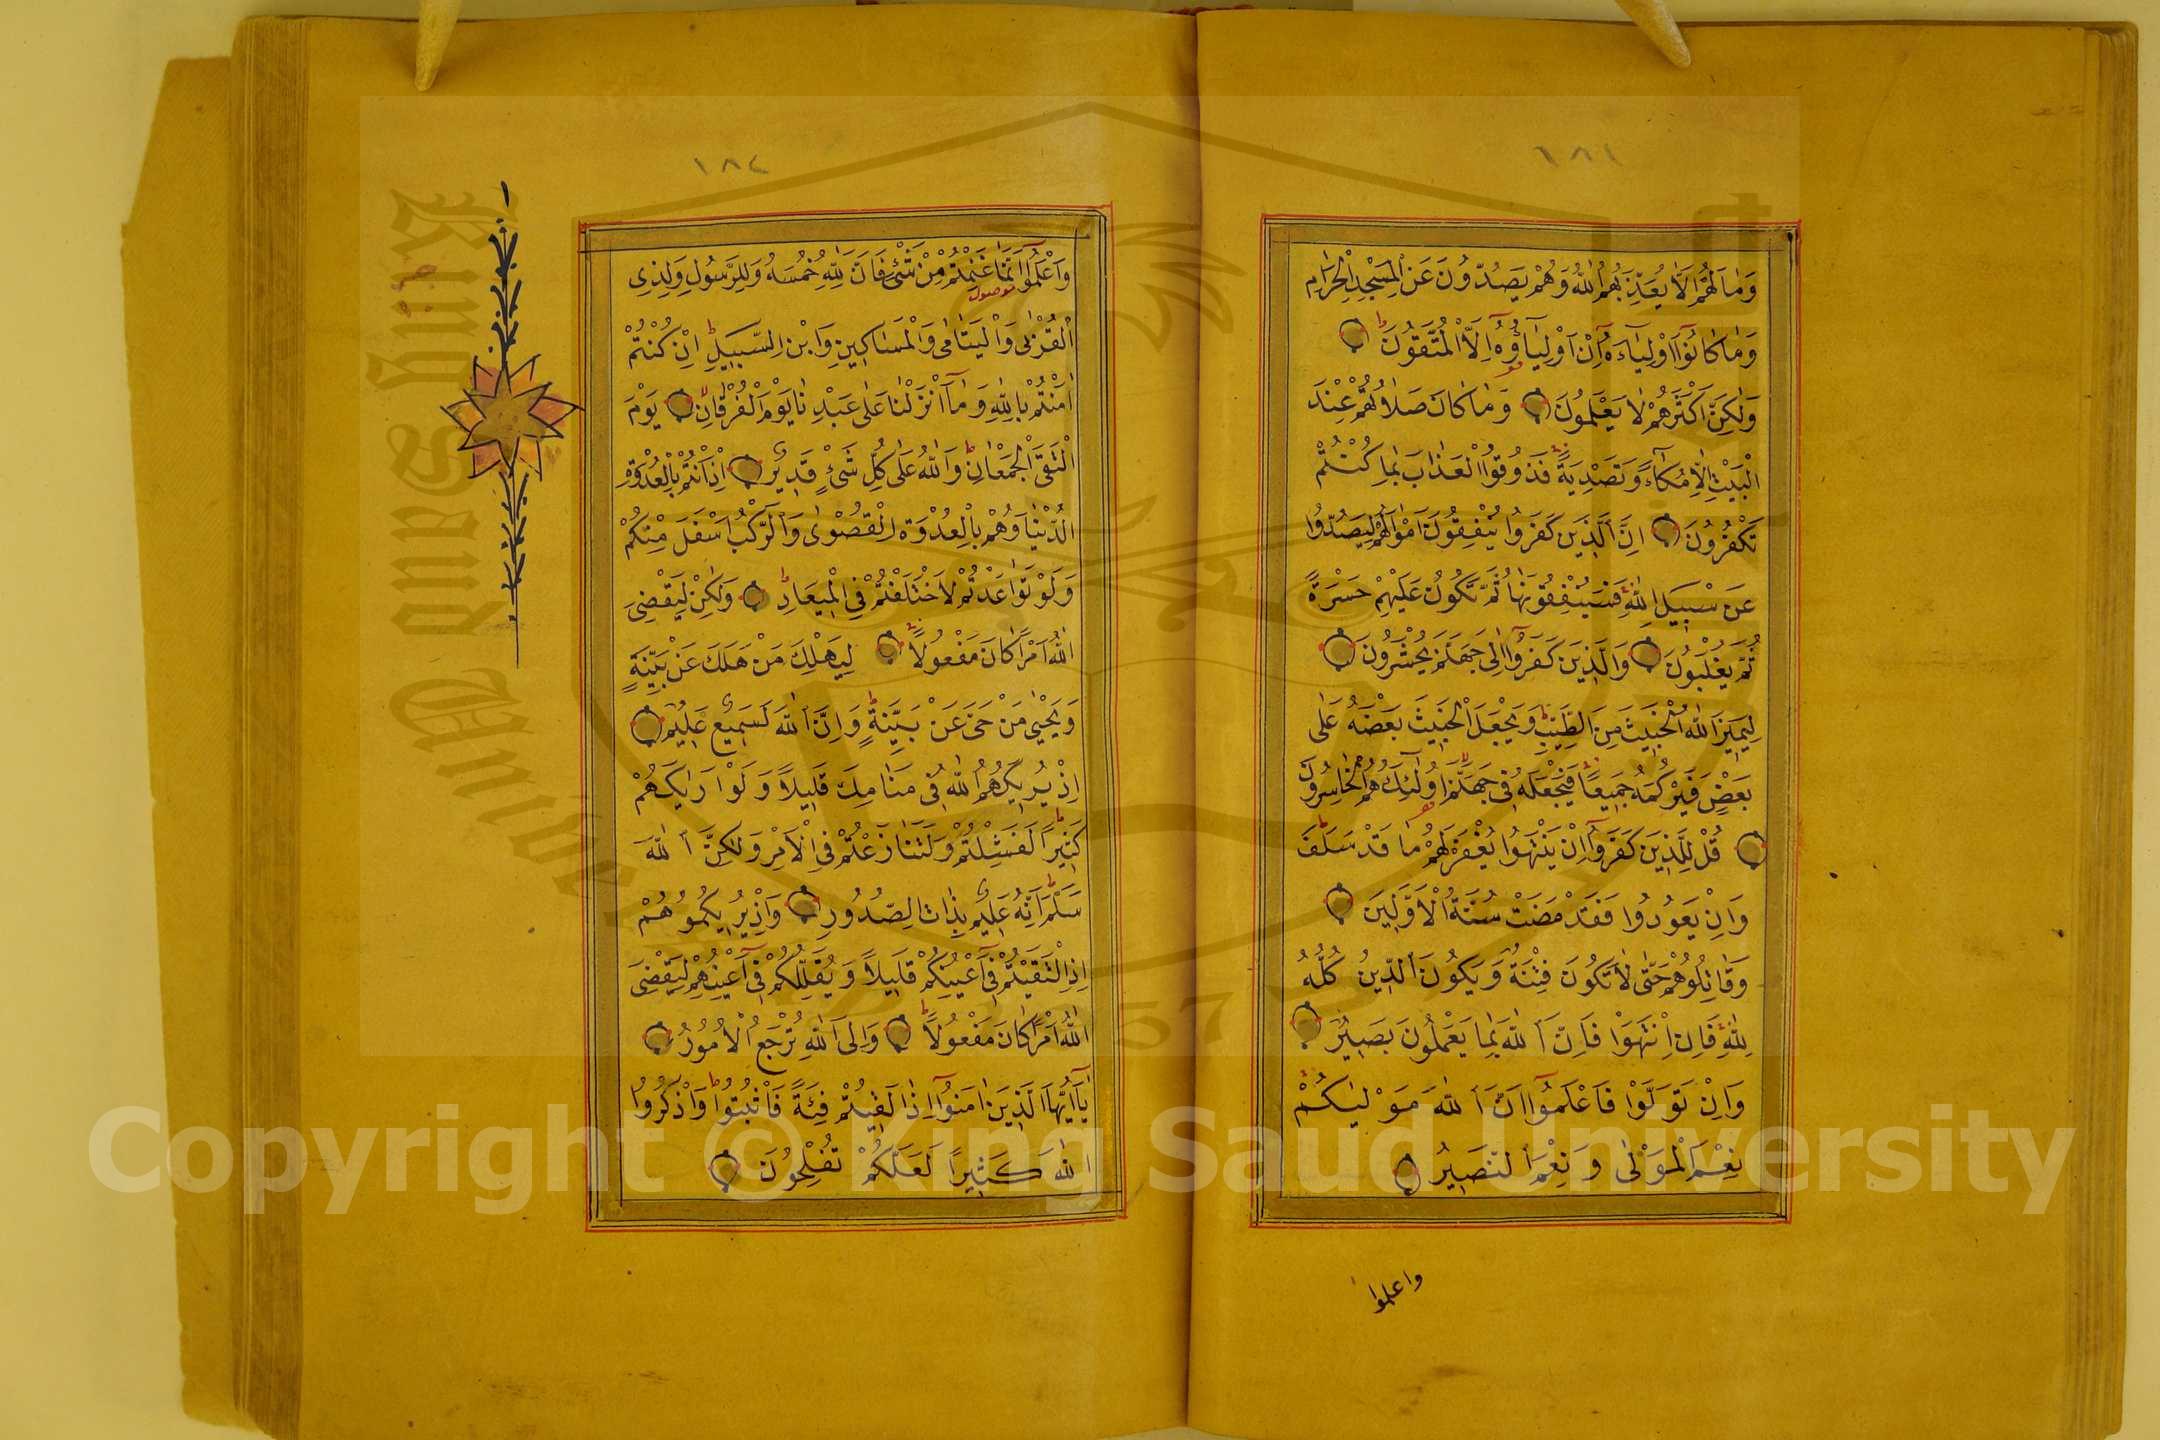 ١٨١
وَمَا لَهُمْ اَلَّا يُعَذِّبَهُمُ اللّٰهُ وَهُمْ يَصُدُّونَ عَنِ الْمَسْجِدِ الْحَرَامِ
وَمَا كَانُوٓا اَوْلِيَآءَهُٓ اِنْ اَوْلِيَآؤُهُٓ اِلَّا الْمُتَّقُونَ
وَلٰكِنَّ اَكْثَرَهُمْ لَا يَعْلَمُونَ وَمَا كَانَ صَلَاتُهُمْ عِنْدَ
الْبَيْتِ اِلَّا مُكَآءً وَتَصْدِيَةً فَذُوقُوا الْعَذَابَ بِمَا كُنْتُمْ
تَكْفُرُونَ اِنَّ الَّذِينَ كَفَرُوا يُنْفِقُونَ اَمْوَالَهُمْ لِيَصُدُّوا
عَنْ سَبِيلِ اللّٰهِ فَسَيُنْفِقُونَهَا ثُمَّ تَكُونُ عَلَيْهِمْ حَسْرَةً
ثُمَّ يُغْلَبُونَ وَالَّذِينَ كَفَرُوٓا اِلٰى جَهَنَّمَ يُحْشَرُونَ
لِيَمِيزَ اللّٰهُ الْخَبِيثَ مِنَ الطَّيِّبِ وَيَجْعَلَ الْخَبِيثَ بَعْضَهُ عَلٰى
بَعْضٍ فَيَرْكُمَهُ جَمِيعًا فَيَجْعَلَهُ فِى جَهَنَّمَ اُولٰٓئِكَ هُمُ الْخَاسِرُونَ
قُلْ لِلَّذِينَ كَفَرُوٓا اِنْ يَنْتَهُوا يُغْفَرْ لَهُمْ مَا قَدْ سَلَفَ
وَاِنْ يَعُودُوا فَقَدْ مَضَتْ سُنَّةُ الْاَوَّلِينَ
وَقَاتِلُوهُمْ حَتّٰى لَا تَكُونَ فِتْنَةٌ وَيَكُونَ الدِّينُ كُلُّهُ
لِلّٰهِ فَاِنِ انْتَهَوْا فَاِنَّ اللّٰهَ بِمَا يَعْمَلُونَ بَصِيرٌ
وَاِنْ تَوَلَّوْا فَاعْلَمُوٓا اَنَّ اللّٰهَ مَوْلٰيكُمْ
نِعْمَ الْمَوْلٰى وَنِعْمَ النَّصِيرُ
واعلموا
١٨٢
وَاعْلَمُوٓا اَنَّمَا غَنِمْتُمْ مِنْ شَىْءٍ فَاَنَّ لِلّٰهِ خُمُسَهُ وَلِلرَّسُولِ وَلِذِى
الْقُرْبٰى وَالْيَتَامٰى وَالْمَسَاكِينِ وَابْنِ السَّبِيلِ اِنْ كُنْتُمْ
اٰمَنْتُمْ بِاللّٰهِ وَمَآ اَنْزَلْنَا عَلٰى عَبْدِنَا يَوْمَ الْفُرْقَانِ يَوْمَ
الْتَقَى الْجَمْعَانِ وَاللّٰهُ عَلٰى كُلِّ شَىْءٍ قَدِيرٌ اِذْ اَنْتُمْ بِالْعُدْوَةِ
الدُّنْيَا وَهُمْ بِالْعُدْوَةِ الْقُصْوٰى وَالرَّكْبُ اَسْفَلَ مِنْكُمْ
وَلَوْ تَوَاعَدْتُمْ لَاخْتَلَفْتُمْ فِى الْمِيعَادِ وَلٰكِنْ لِيَقْضِىَ
اللّٰهُ اَمْرًا كَانَ مَفْعُولًا لِيَهْلِكَ مَنْ هَلَكَ عَنْ بَيِّنَةٍ
وَيَحْيٰى مَنْ حَىَّ عَنْ بَيِّنَةٍ وَاِنَّ اللّٰهَ لَسَمِيعٌ عَلِيمٌ
اِذْ يُرِيكَهُمُ اللّٰهُ فِى مَنَامِكَ قَلِيلًا وَلَوْ اَرٰيكَهُمْ
كَثِيرًا لَفَشِلْتُمْ وَلَتَنَازَعْتُمْ فِى الْاَمْرِ وَلٰكِنَّ اللّٰهَ
سَلَّمَ اِنَّهُ عَلِيمٌ بِذَاتِ الصُّدُورِ وَاِذْ يُرِيكُمُوهُمْ
اِذِ الْتَقَيْتُمْ فِىٓ اَعْيُنِكُمْ قَلِيلًا وَيُقَلِّلُكُمْ فِىٓ اَعْيُنِهِمْ لِيَقْضِىَ
اللّٰهُ اَمْرًا كَانَ مَفْعُولًا وَاِلَى اللّٰهِ تُرْجَعُ الْاُمُورُ
يَآ اَيُّهَا الَّذِينَ اٰمَنُوٓا اِذَا لَقِيتُمْ فِئَةً فَاثْبُتُوا وَاذْكُرُوا
اللّٰهَ كَثِيرًا لَعَلَّكُمْ تُفْلِحُونَ
Copyright © King Saud University